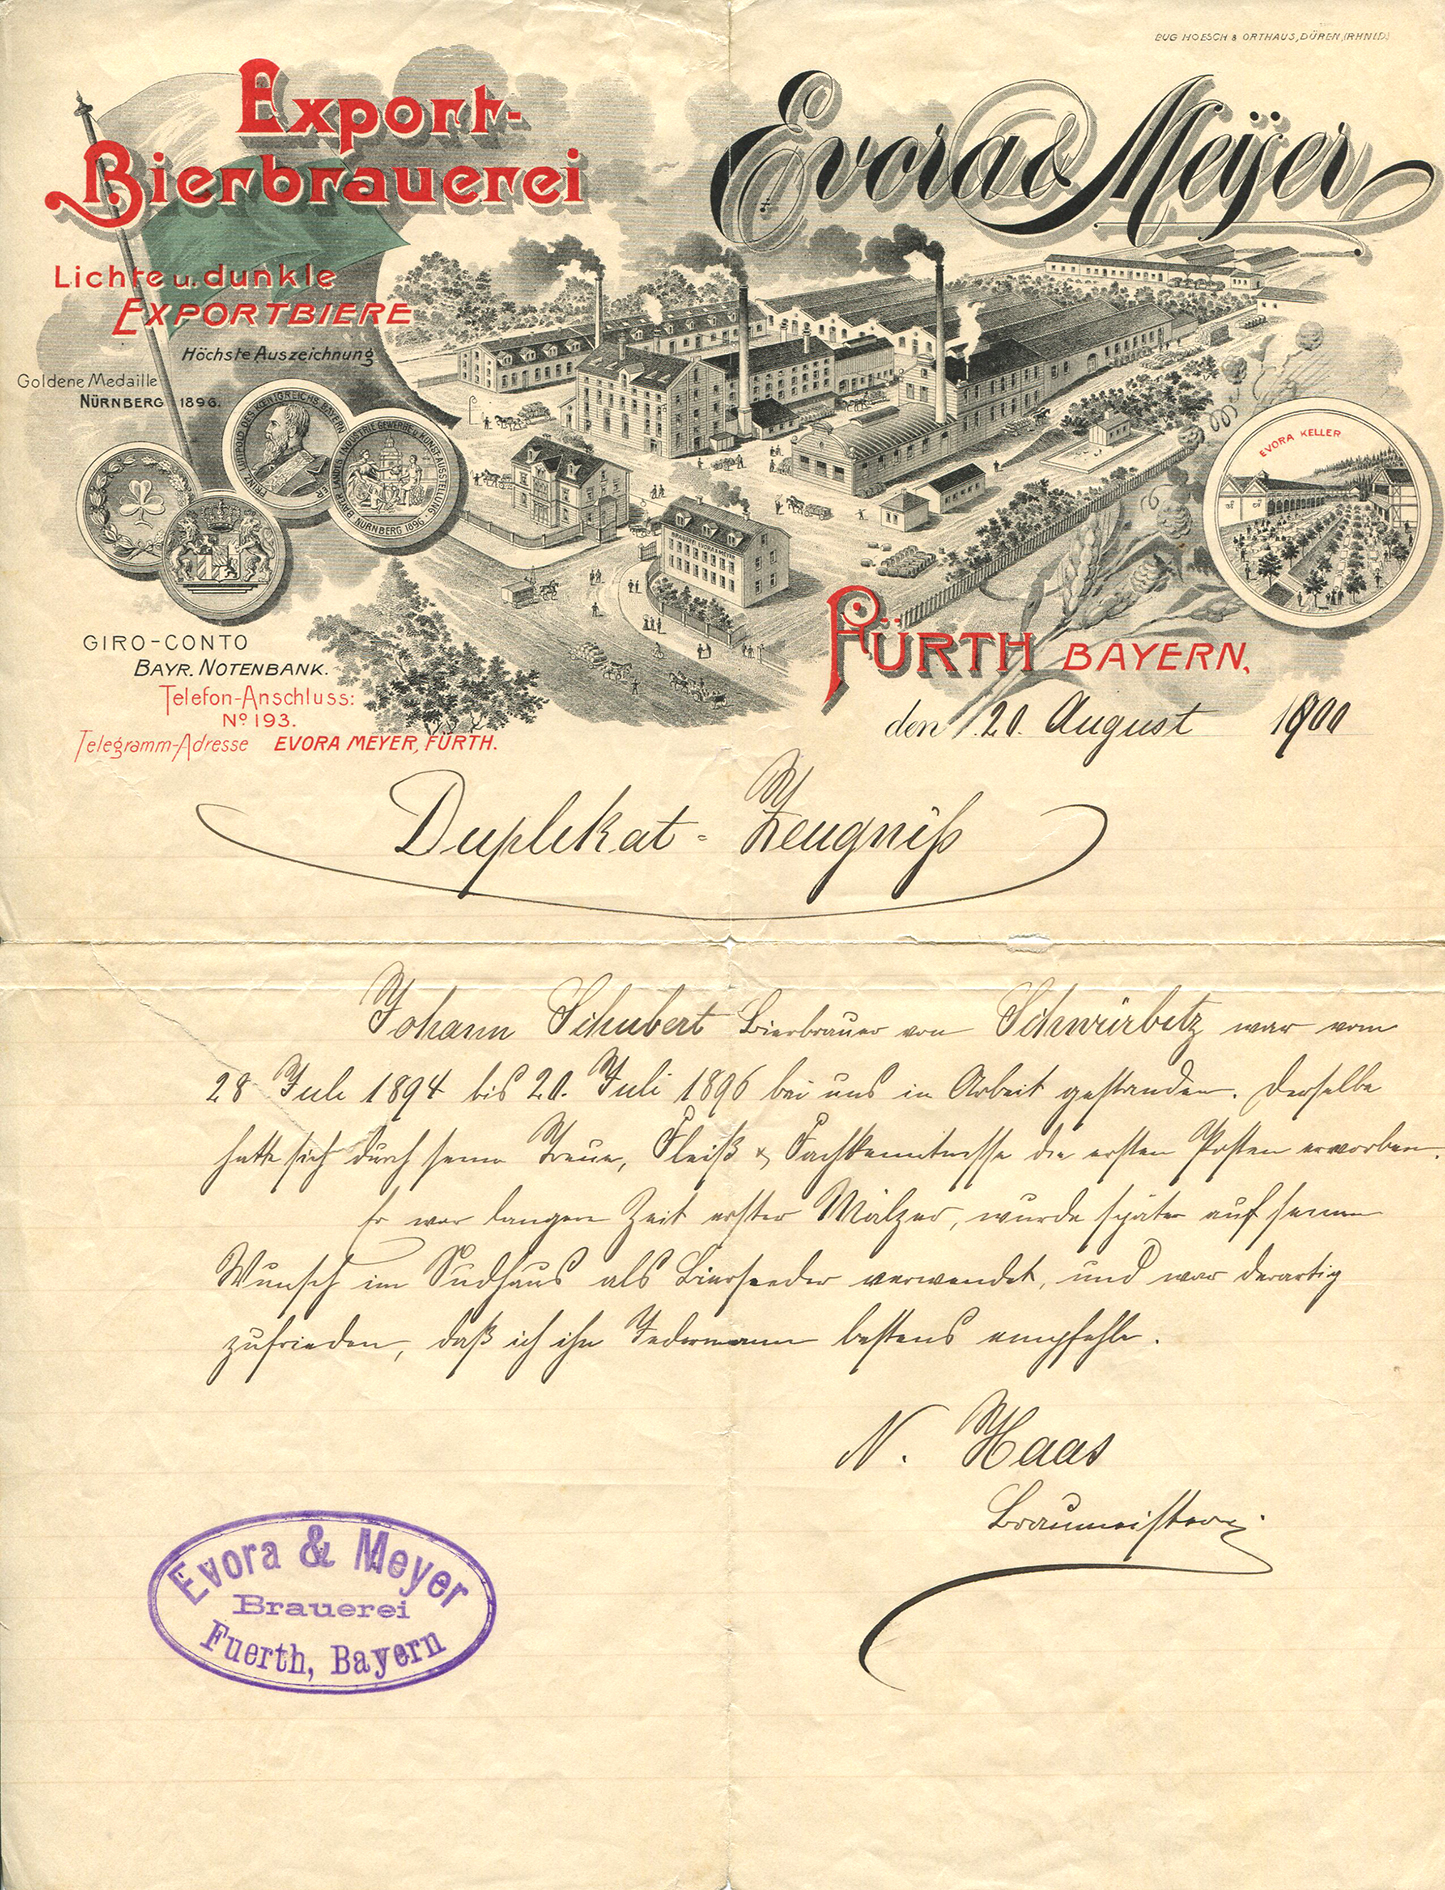 BUG HOESCH & ORTHAUS, DÜREN, (RHNLD.)
Export-
Bierbrauerei
Evora & Meÿer
Lichte u. dunkle
EXPORTBIERE
Höchste Auszeichnung
Goldene Medaille
NÜRNBERG 1896.
PRINZ LUITPOLD DES KOENIGREICHS BAYERN
BAYER. LANDES INDUSTRIE GEWERBE U. KUNST-AUSSTELLUNG
NÜRNBERG 1896
EVORA KELLER
GIRO-CONTO
BAYR. NOTENBANK.
Telefon-Anschluss:
No 193.
Telegramm-Adresse EVORA MEYER, FÜRTH.
FÜRTH BAYERN,
den 20. August 1900
Duplikat-Zeugniß
Johann Schubert Bierbrauer von Schwürbitz war vom
28 Juli 1894 bis 20. Juli 1896 bei uns in Arbeit gestanden. Derselbe
hatte sich durch seine Treue, Fleiß & Fachkenntnisse die ersten Posten erworben.
Er war längere Zeit erster Mälzer, wurde später auf seinen
Wunsch im Sudhaus als Biersieder verwendet, und war derartig
zufrieden, daß ich ihn Jedermann bestens empfehle.
N. Haas
Braumeister.
Evora & Meyer
Brauerei
Fuerth, Bayern